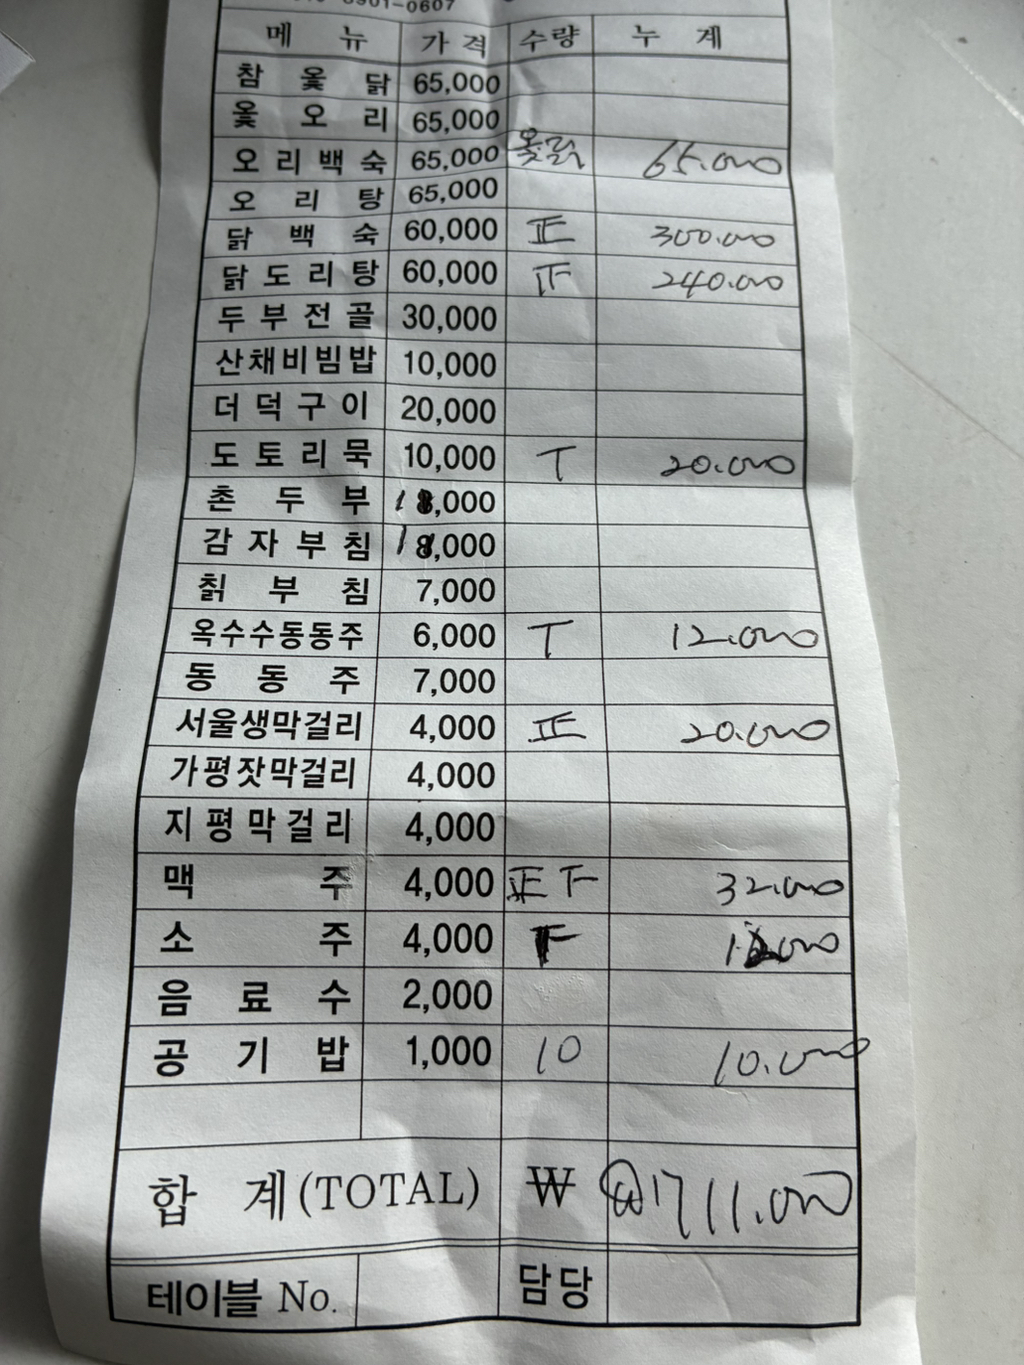 8901-0607
메 뉴 가 격 수량 누 계
참 옻 닭 65,000
옻 오 리 65,000
오 리 백 숙 65,000 옻닭 65.000
오 리 탕 65,000
닭 백 숙 60,000 正 300.000
닭 도 리 탕 60,000 240.000
두 부 전 골 30,000
산채비빔밥 10,000
더 덕 구 이 20,000
도 토 리 묵 10,000 T 20.000
촌 두 부 ,000
감 자 부 침 ,000
칡 부 침 7,000
옥수수동동주 6,000 T 12.000
동 동 주 7,000
서울생막걸리 4,000 正 20.000
가평잣막걸리 4,000
지 평 막 걸 리 4,000
맥 주 4,000 正 下 32.000
소 주 4,000 下 12.000
음 료 수 2,000
공 기 밥 1,000 10 10.000
합 계(TOTAL) ₩ 711.000
테이블 No. 담당